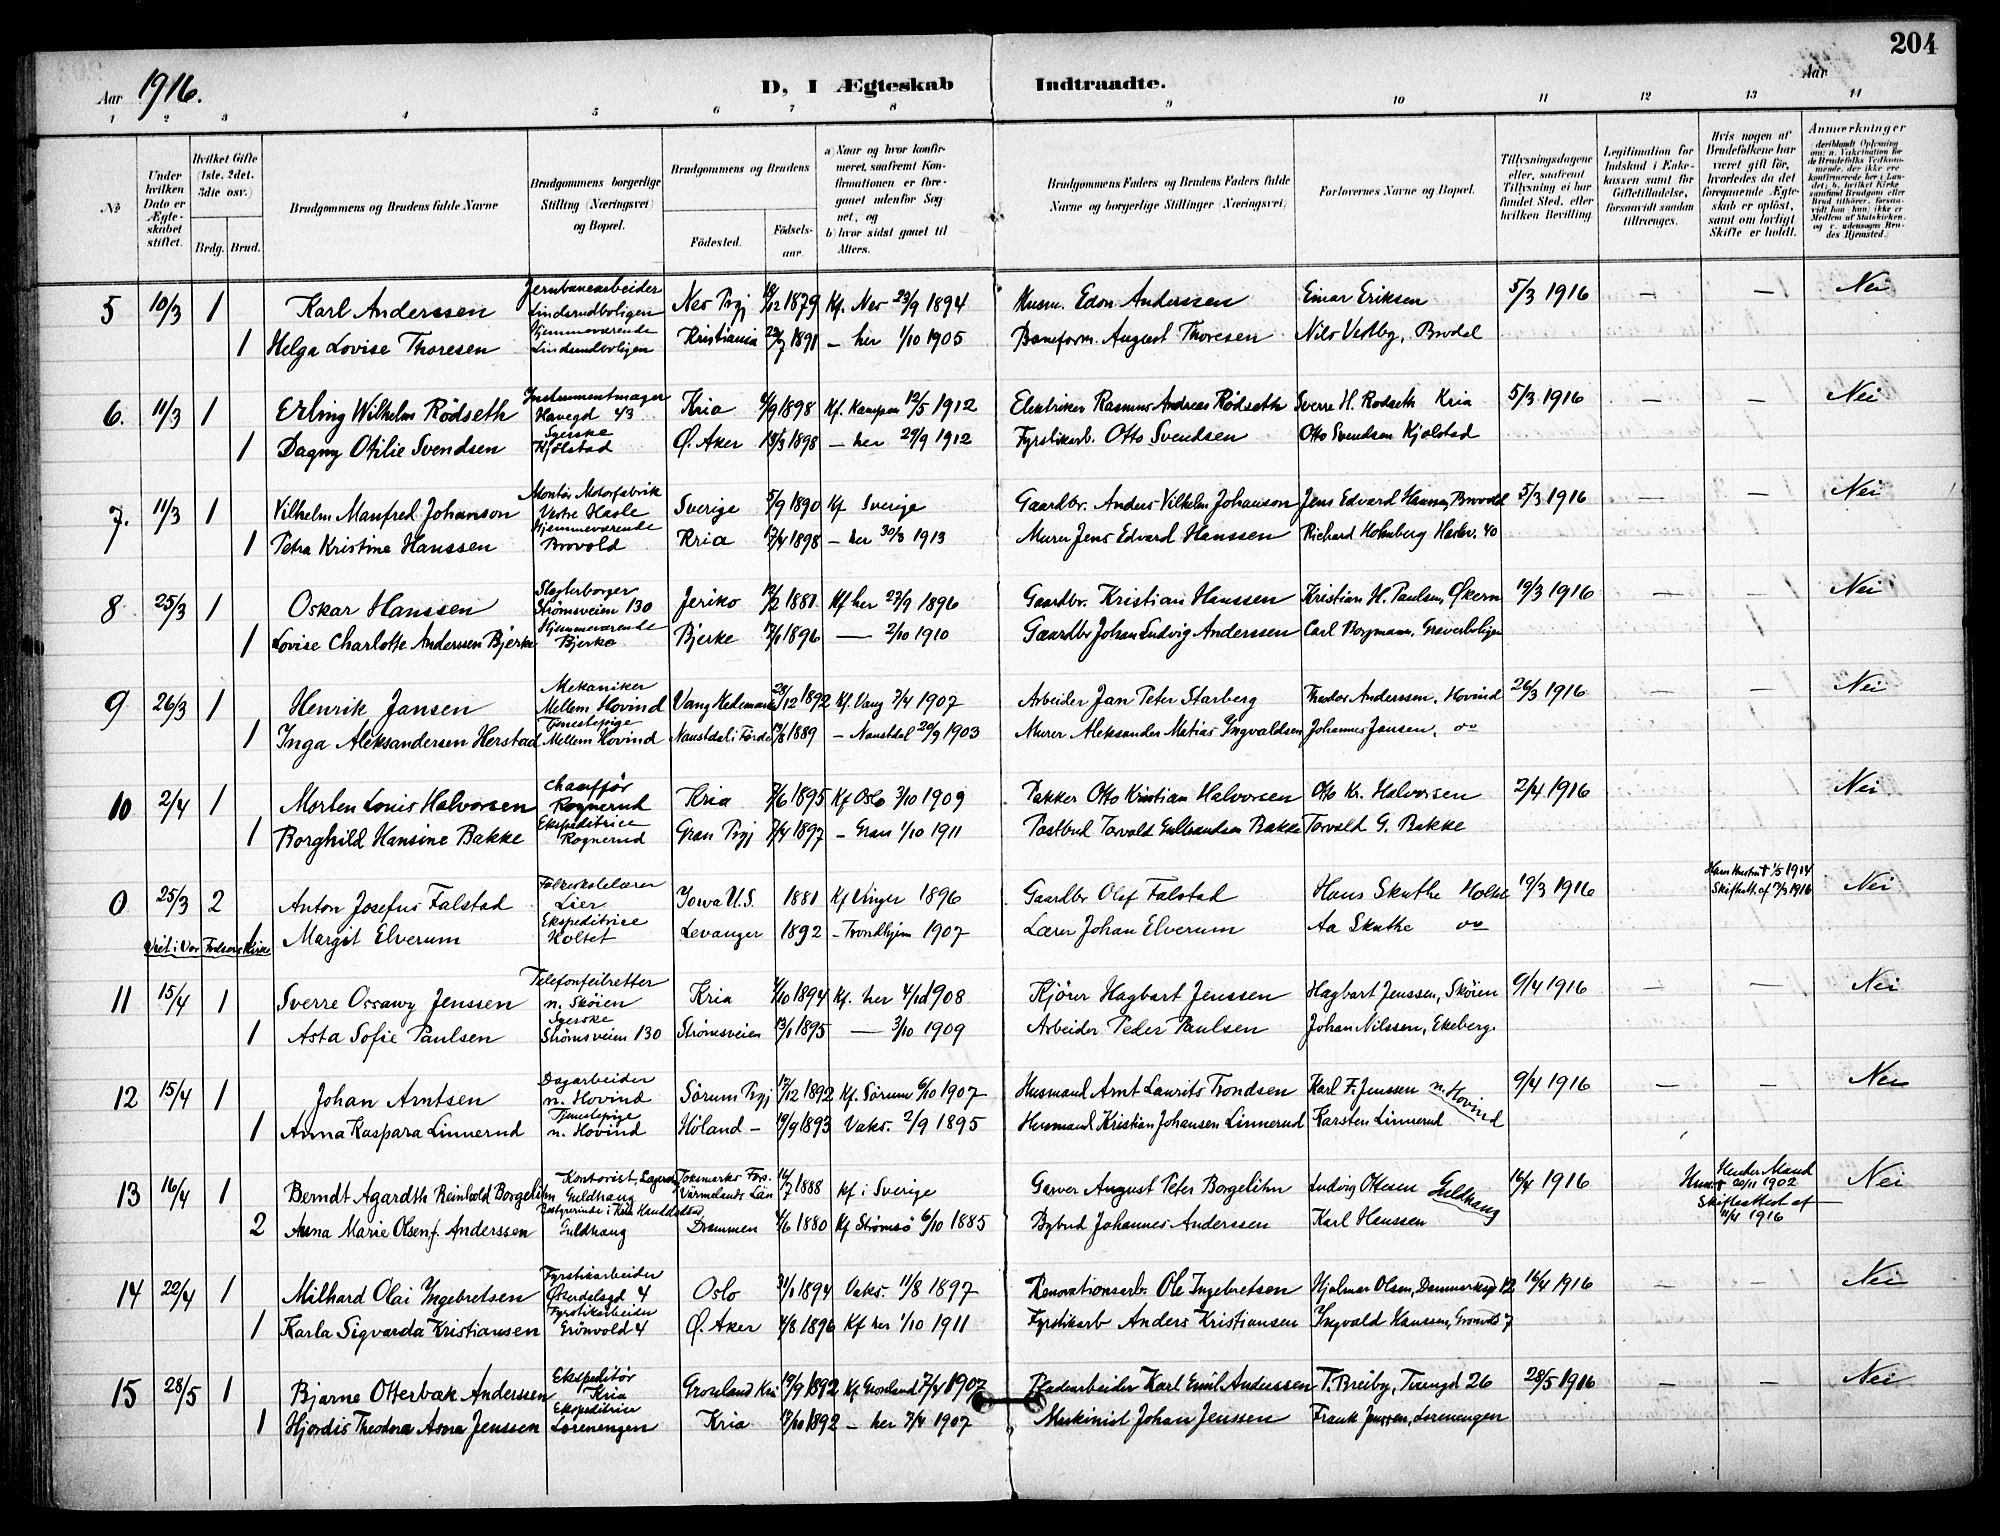 204
Aar 1916.
D, I Ægteskab Indtraadte.
Aar
1 2 3 4 5 6 7 8 9 10 11 12 13 14
№
Under hvilken Dato er Ægteskabet stiftet.
Hvilket Gifte (1ste, 2det, 3die osv.)
Brdg. Brud.
Brudgommens og Brudens fulde Navne
Brudgommens borgerlige Stilling (Næringsvei) og Bopæl.
Brudgommens og Brudens
Fødested.
Fødselsaar.
a) Naar og hvor konfirmeret, saafremt Konfirmationen er foregaaet udenfor Sognet, og
b) hvor sidst gaaet til Alters.
Brudgommens Faders og Brudens Faders fulde Navne og borgerlige Stillinger (Næringsvei)
Forlovernes Navne og Bopæl.
Tillysningsdagene eller, saafremt Tillysning ei har fundet Sted, efter hvilken Bevilling.
Legitimation for Indskud i Enkekassen samt for Giftetilladelse, forsaavidt saadan tiltrænges.
Hvis nogen af Brudefolkene har været gift før, hvorledes da det foregaaende Ægteskab er opløst, samt om lovligt Skifte er holdt.
Anmerkninger
5 10/3 1 Karl Anderssen Jernbanearbeider Linderudboligen Nes Prgj 18/12 1879 Kf. Nes 23/9 1894 Husm. Edon Anderssen Einar Eriksen 5/3 1916 — — Nei
1 Helga Lovise Thoresen Hjemmeværende Linderudboligen Kristiania 1891 — her 1/10 1905 Baneform. August Thoresen Nils Vestby, Brodal
6. 11/3 1 Erling Wilhelm Rödseth Instrumentmager Havegd 43 Kria 1898 Kf. Kampen 12/5 1912 Elektriker Rasmus Andreas Rødseth Sverre H. Rødseth Kria 5/3 1916 — — Nei
1 Dagny Otilie Svendsen Syerske Kjölstad Ø. Aker 1898 — her 29/9 1912 Fyrstikarb. Otto Svendsen Otto Svendsen Kjølstad
7. 11/3 1 Vilhelm Manfred Johanson Montør Motorfabrik Vestre Hasle Sverige 5/9 1890 Kf Sverige Gaardbr. Anders Vilhelm Johanson Jens Edvard Hanssen, 5/3 1916 — — Nei
1 Petra Kristine Hanssen Hjemmeværende Brovold Kria 17/4 1898 — her 30/3 1913 Murer Jens Edvard Hanssen Richard Holmberg Haslev. 40
8 25/3 1 Oskar Hanssen Slagterborger Strømsveien 130 Jeriko 12/2 1881 Kf her 27/9 1896 Gaardbr. Kristian Hanssen Kristian H. Paulsen, Økern 19/3 1916 — — Nei
1 Lovise Charlotte Anderssen Bjerke Hjemmeværende Bjerke Bjerke 1896 — 2/10 1910 Gaardbr Johan Ludvig Anderssen Carl Borgmann, Graverboligen
9 26/3 1 Henrik Jansen Mekaniker Mellem Hovind Vang Hedemark 28/12 1892 Kf. Vang 7/4 1907 Arbeider Jan Peter Starberg Theodor Anderssen, Hovind 26/3 1916 — — Nei
1 Inga Aleksandersen Herstad Tjenestepige Mellem Hovind Naustdal i Førde 1889 — Naustdal 20/9 1903 Murer Aleksander Matias Ingvaldsen Johannes Jansen, oo
10 2/4 1 Morten Louis Halvorsen Chauffør Rognerud Kria 7/6 1895 Kf Oslo 3/10 1909 Pakker Otto Kristian Halvorsen Otto Kr. Halvorsen 2/4 1916 Nei
1 Borghild Hansine Bakke Ekspeditrice Rognerud Gran Prgj 7/4 1897 — Gran 1/10 1911 Postbud Torvald Gulbrandsen Bakke Torvald G. Bakke
0 25/3 2 Anton Josefus Falstad Folkeskolelærer Lier Iowa U.S. 1881 Kf Vinger 1896 Gaardbr Olaf Falstad Hans Skuthe Holtet 19/3 1916 Hans Hustru † 1/5 1914 Skifteatt. af 7/3 1916 Nei
1 Margit Elverum Ekspeditrice Holtet Levanger 1892 — Trondhjem 1907 Lærer Johan Elverum Aa Skuthe oo
Viet i Vor Frelsers Kirke
11 15/4 1 Sverre Ossawy Jenssen Telefonfeilretter n. Skøien Kria 1/10 1894 Kf. her 4/10 1908 Kjører Hagbart Jenssen Hagbart Jenssen, Skøien 9/4 1916 Nei
1 Asta Sofie Paulsen Syerske Strømsveien 130 Strømsveien 13/1 1895 — 3/10 1909 Arbeider Peder Paulsen Johan Nilssen, Ekeberg.
12 15/4 1 Johan Arntsen Dagarbeider n. Hovind Sørum Prgj 17/12 1892 Kf. Sørum 6/10 1907 Husmand Arnt Laurits Trondsen Karl F. Jenssen n. Hovind 9/4 1916 — — Nei
1 Anna Kaspara Linnerud Tjenestepige n. Hovind Høland — 19/9 1893 Vaks. 2/9 1895 Husmand Kristian Johansen Linnerud Karsten Linnerud
13 16/4 1 Berndt Agardth Reinhold Borgelihn Kontorist, Guldhaug Värmelands Län 1888 Kf i Sverige Garver August Peter Borgelihn Ludvig Olesen Guldhaug 16/4 1916 Hendes Mand † 20/11 1902 Skifteattest af 11/4 1916 Nei
2 Anna Marie Olsen f. Anderssen Bestyrerinde i Guldhaug Drammen 4/6 1880 Kf Strømsø 6/10 1885 Bybud Johannes Anderssen Karl Hanssen
14 22/4 1 Milhard Olai Yngebretsen Fyrstikarbeider Østerdalsgd 4 Oslo 31/1 1894 Vaks. 11/8 1897 Renovationsarb. Ole Ingebretsen Hjalmar Olsen, Danmarksgd 12 16/4 1916 — — Nei
1 Karla Sigvarda Kristiansen Fyrstikarbeider Grönvold 4 Ø. Aker 7/8 1896 Kf her 1/10 1911 Fyrstikarb Anders Kristiansen Yngvald Hanssen, 7
15 28/5 1 Bjarne Otterbæk Anderssen Ekspeditör Kria 19/9 1892 Kf. 7/4 1907 Pladearbeider Karl Emil Anderssen T. Breiby, Tvengd 26 28/5 1916 Nei
1 Hjørdis Theodora Asora Jenssen Ekspeditrice Lørenengen Kria 7/10 1892 — her 7/4 1907 Maskinist Johan Jenssen Frank Jenssen, Lørenengen